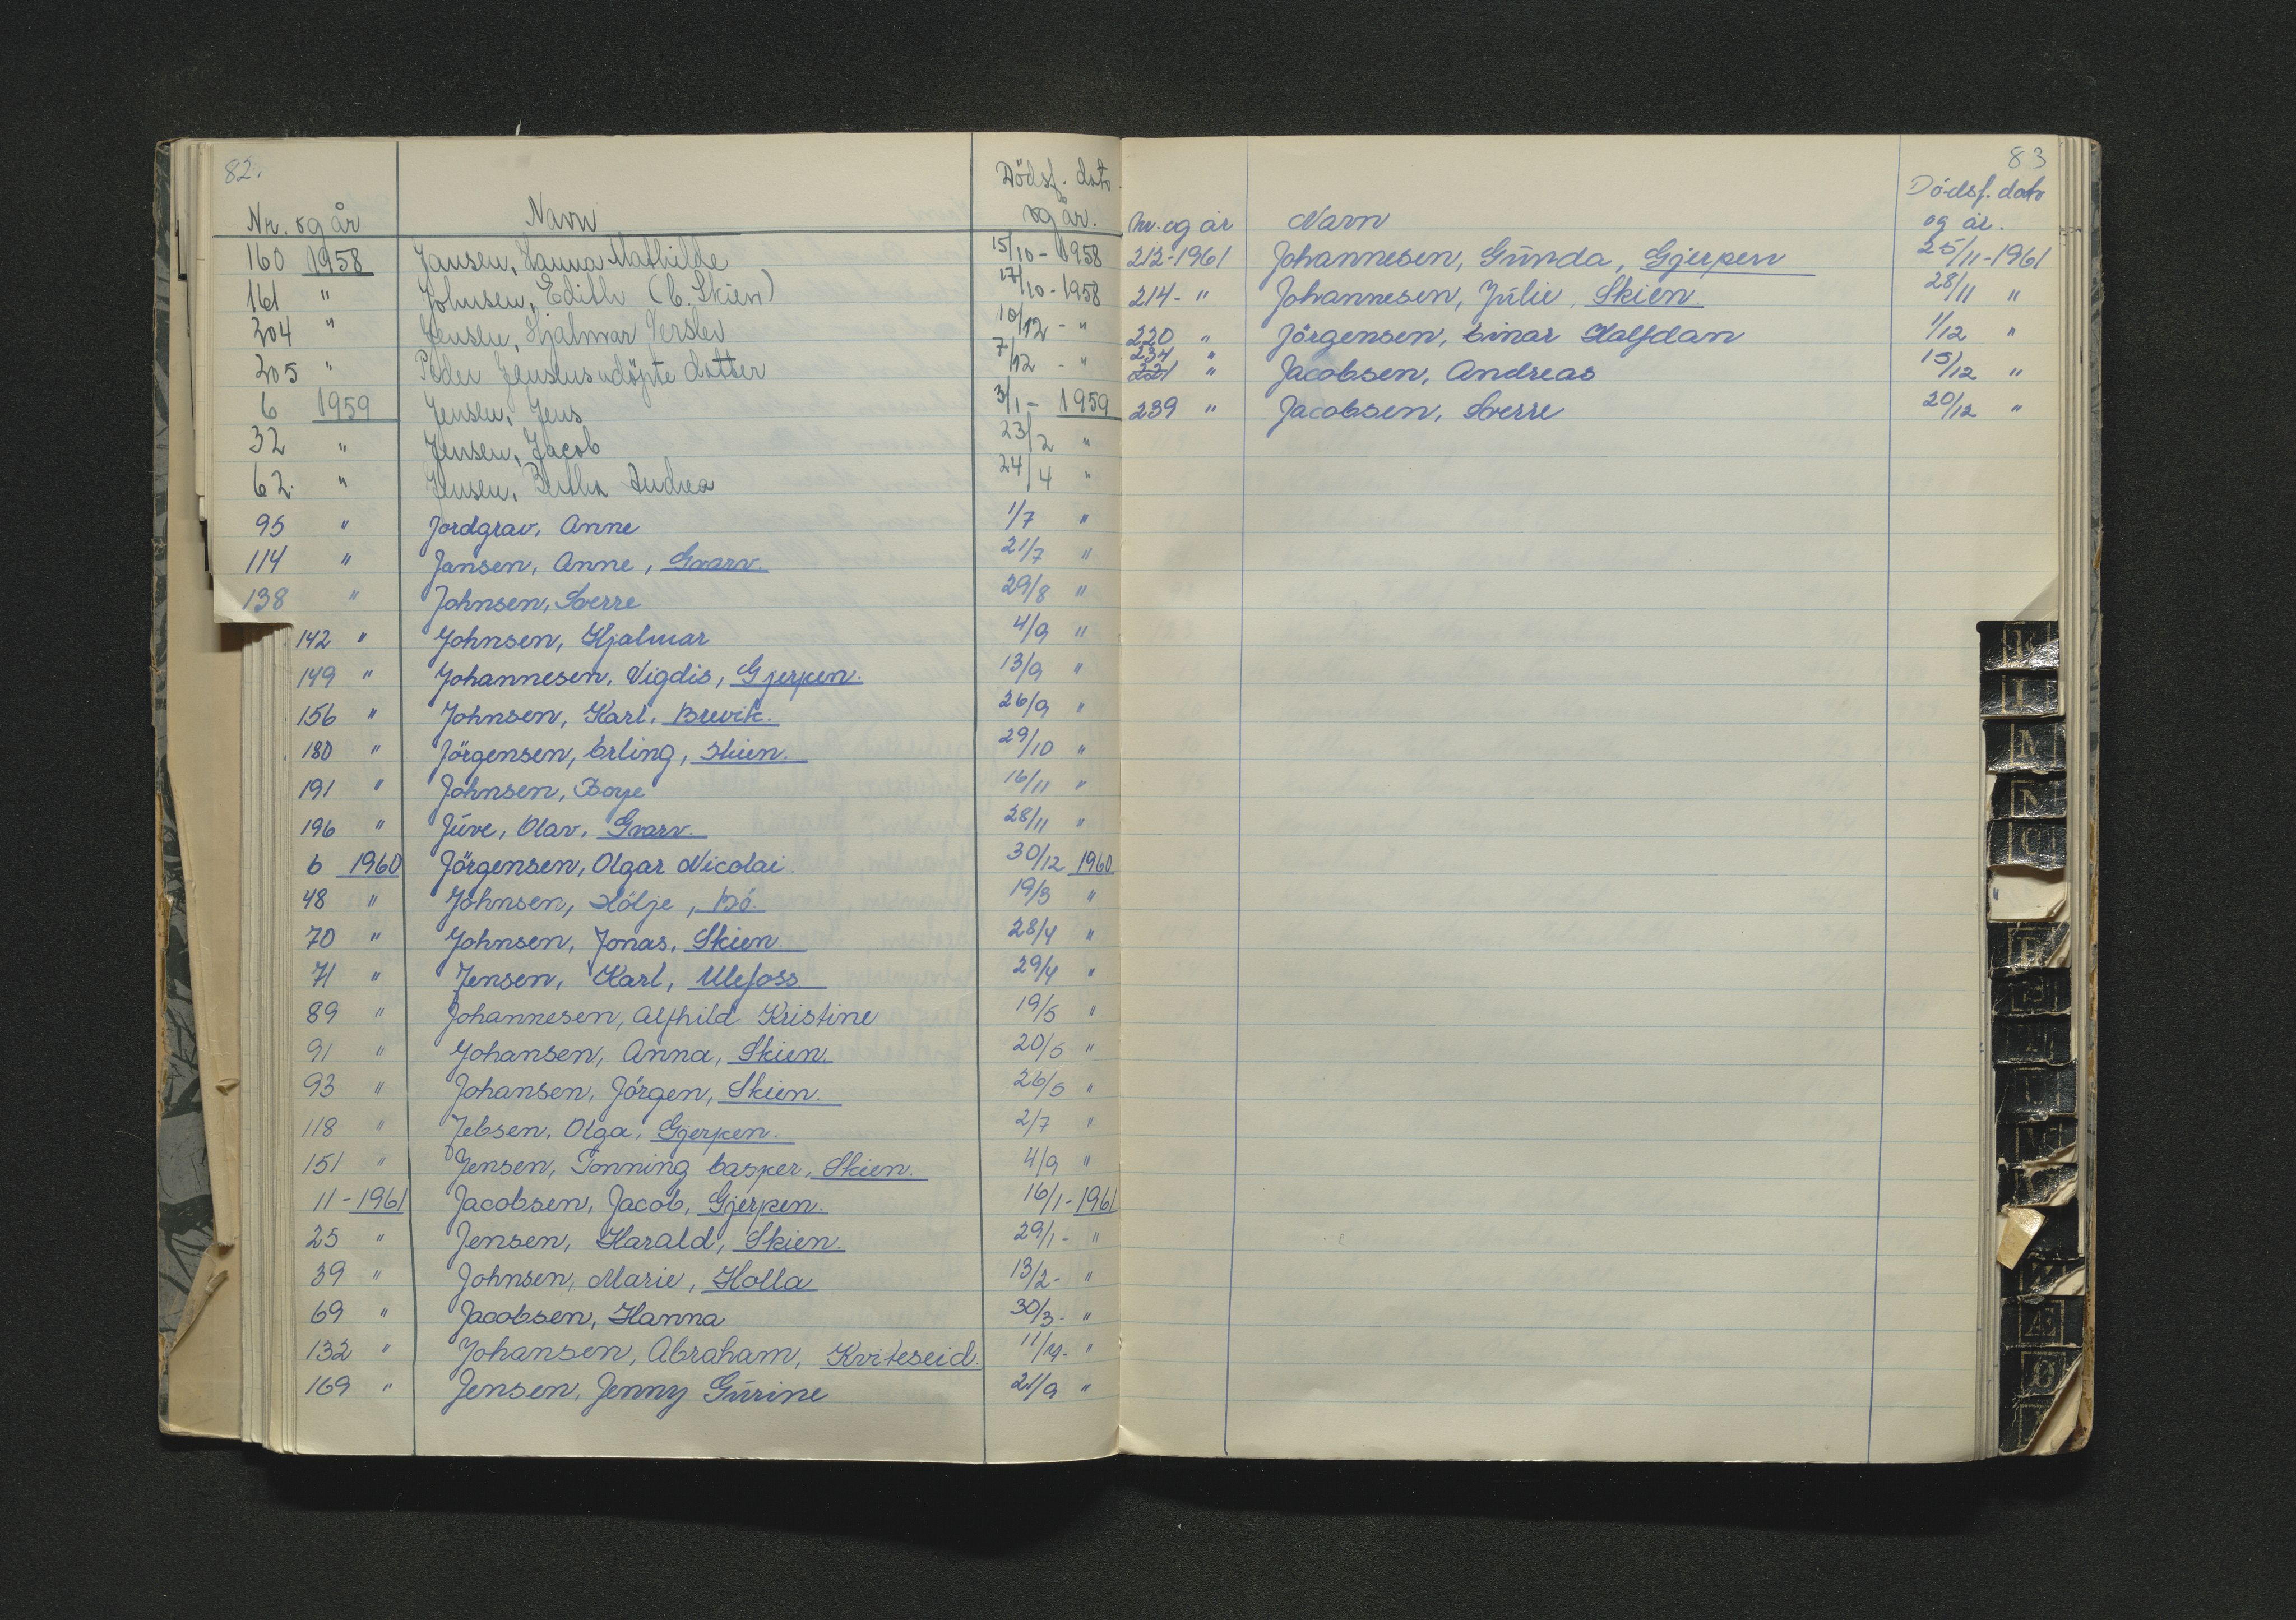 82.
Dödsf. dato
Nr. og år Navn og år.
160 1958 Jansen, Hanna Mathilde 15/10 - 1958
161 " Johnsen, Edith (b. Skien) 17/10 - 1958
204 " Jensen, Hjalmar Versler 10/12 - "
205 " Peder Jensens udöpte datter 7/12 - "
6 1959 Jensen, Jens 3/1 - 1959
32 " Jensen, Jacob 23/2 "
62. " Jensen, Bertha Andrea 24/4 "
95 " Jordgrav, Anne 1/7 "
114 " Jansen, Anne, Gvarv. 21/7 "
138 " Johnsen, Sverre 29/8 "
142 " Johnsen, Hjalmar 4/9 "
149 " Johannesen, Vigdis, Gjerpen. 13/9 "
156 " Johnsen, Karl, Brevik. 26/9 "
180 " Jörgensen, Erling, Skien. 29/10 "
191 " Johnsen, Boye 16/11 "
196 " Juve, Olav, Gvarv. 28/11 "
6 1960 Jörgensen, Olgar Nicolai. 30/12 1960
48 " Johnsen, Hölje, Bö. 19/3 "
70 " Johnsen, Jonas, Skien. 28/4 "
71 " Jensen, Karl, Ulefoss. 29/4 "
89 " Johannesen, Alfhild Kristine 19/5 "
91 " Johansen, Anna, Skien. 20/5 "
93 " Johansen, Jörgen, Skien. 26/5 "
118 " Jebsen, Olga, Gjerpen. 2/7 "
151 " Jensen, Tonning Casper, Skien. 4/9 "
11 - 1961 Jacobsen, Jacob, Gjerpen. 16/1 - 1961
25 " Jensen, Harald, Skien. 29/1 - "
39 " Johnsen, Marie, Holla 13/2 - "
69 " Jacobsen, Hanna 30/3 - "
132 " Johansen, Abraham, Kviteseid. 11/7 - "
169 " Jensen, Jenny Gurine 21/9 "
83
Dödsf. dato
Nr. og år Navn og år.
212 - 1961 Johannesen, Gunda, Gjerpen 25/11 - 1961
214 - " Johannesen, Julie, Skien. 28/11 "
220 " Jörgensen, Einar Halfdan 1/12 "
234
221 " Jacobsen, Andreas 15/12 "
239 " Jacobsen, Sverre 20/12 "
K
L
M
N
O
R
U
Æ
Ø